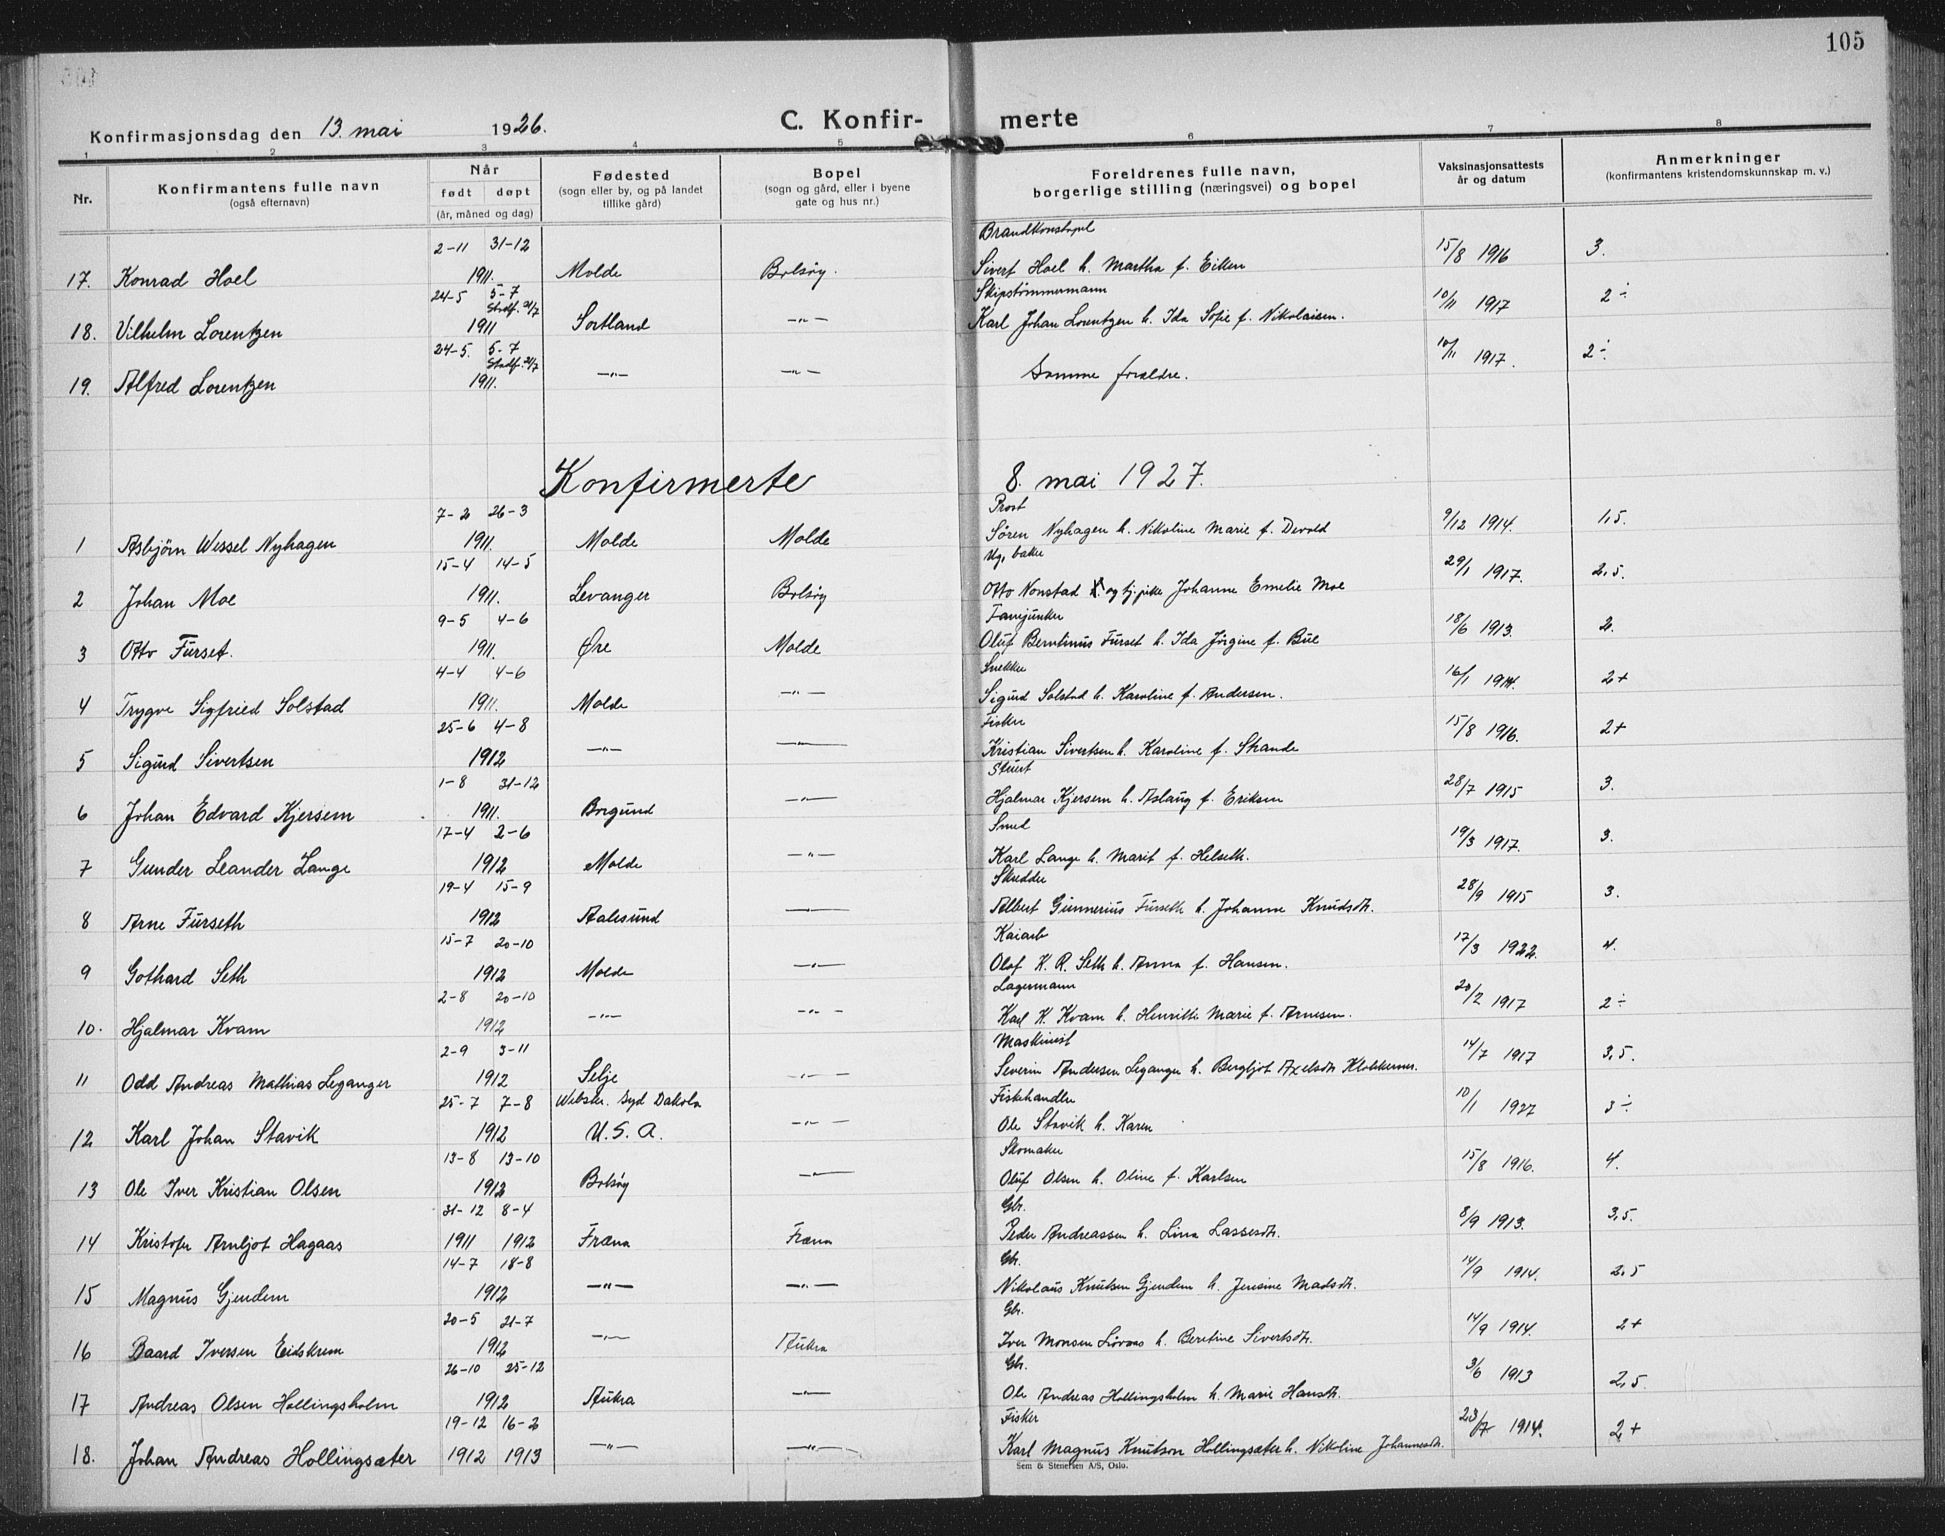 105
Konfirmasjonsdag den 13. mai 1926.
C. Konfirmerte
1 2 3 4 5 6 7 8
Nr.
Konfirmantens fulle navn
(også efternavn)
Når
født døpt
(år, måned og dag)
Fødested
(sogn eller by, og på landet
tillike gård)
Bopel
(sogn og gård, eller i byene
gate og hus nr.)
Foreldrenes fulle navn,
borgerlige stilling (næringsvei) og bopel
Vaksinasjonsattests
år og datum
Anmerkninger
(konfirmantens kristendomskunnskap m. v.)
2-11 31-12 Brandkonstapel
17. Konrad Hoel 1911. Molde Bolsøy. Sivert Hoel h. Martha f. Eiken 15/8 1916 3.
24-5 5-7 Stadf. 21/7 Skipstømmermann
18. Vilhelm Lorentzen 1911 Sortland -"- Karl Johan Lorentzen h. Ida Sofie f. Nikolaisen. 10/11 1917 2÷
24-5. 5-7 Stadf. 21/7
19. Alfred Lorentzen 1911. -"- -"- Samme forældre. 10/11 1917. 2÷
Konfirmerte 8. mai 1927.
7-2 26-3 Prost
1 Asbjörn Wessel Nyhagen 1911. Molde Molde Søren Nyhagen h. Nikoline Marie f. Devold 9/12 1914. 1,5.
15-4 14-5 Ug. baker
2 Johan Moe 1911. Levanger Bolsöy Otto Nonstad og tj.pike Johanne Emelie Moe 29/1 1917. 2,5.
9-5 4-6 Fanejunker
3 Otto Furset. 1911. Øre Molde Oluf Berntinus Furset h. Ida Jörgine f. Bue 18/6 1913. 2.
4-4 4-6 Snekker
4 Trygve Sigfried Solstad 1911. Molde -"- Sigurd Solstad h. Karoline f. Andersen. 16/1 1914. 2+
25-6 4-8 Fisker
5 Sigurd Sivertsen 1912 -"- -"- Kristian Sivertsen h. Karoline f. Strande 15/8 1916. 2+
1-8 31-12 Stuert
6 Johan Edvard Kjersem 1911. Borgund -"- Hjalmar Kjersem h. Aslaug f. Eriksen 28/7 1915 3.
17-4 2-6 Smed
7 Gunder Leander Lange 1912 Molde -"- Karl Lange h. Marit f. Helseth. 19/3 1917. 3.
19-4 15-9 Skredder
8 Arne Furseth 1912 Aalesund -"- Albert Gunnerius Furseth h. Johanne Knudsdtr. 28/9 1915 3.
15-7 20-10 Kaiarb
9 Gothard Seth 1912 Molde -"- Olaf K. R. Seth h. Anna f. Hansen. 17/3 1922. 4.
2-8 20-10 Lagermann
10. Hjalmar Kvam 1912 -"- -"- Karl K. Kvam h. Henritte Marie f. Arnesen. 20/2 1917 2÷
2-9 3-11 Maskinist
11 Odd Andreas Mathias Leganger 1912 Selje -"- Severin Andersen Leganger h. Bergljot Axelsdtr 14/7 1917 3,5.
25-7 7-8 Webster. Syd Dakola Fiskehandler
12 Karl Johan Stavik 1912 U.S.A. -"- Ole Stavik h. Karen 10/1 1927 3÷
13-8 13-10 Skomaker
13 Ole Iver Kristian Olsen 1912 Bolsöy -"- Oluf Olsen h. Oline f. Karlsen 15/8 1916. 4.
31-12 8-4 Gbr.
14 Kristofer Arnljot Hagaas 1911 1912 Fræna Fræna Peder Andreassen h. Lina Lassesdtr. 8/9 1913. 3,5.
14-7 18-8 Gbr.
15 Magnus Gjendem 1912 -"- -"- Nikolaus Knutsen Gjendem h. Jensine Madsdtr. 14/9 1914. 2,5
20-5 21-7 Gbr.
16 Baard Iversen Eidskrem 1912 -"- Aukra Iver Monsen h. Beretine Sivertsdtr. 14/9 1914. 2+
26-10 25-12 Gbr.
17 Andreas Olsen Hollingsholm 1912 Aukra -"- Ole Andreas Hollingsholm h. Marie Hansdtr. 3/6 1913 2,5.
19-12 16-2 Fisker
18. Johan Andreas Hollingsæter 1912 1913 -"- -"- Karl Magnus Knutson Hollingsæter h. Nikoline Johannesdtr. 23/7 1914. 2+
Sem & Stenersen A/S, Oslo.